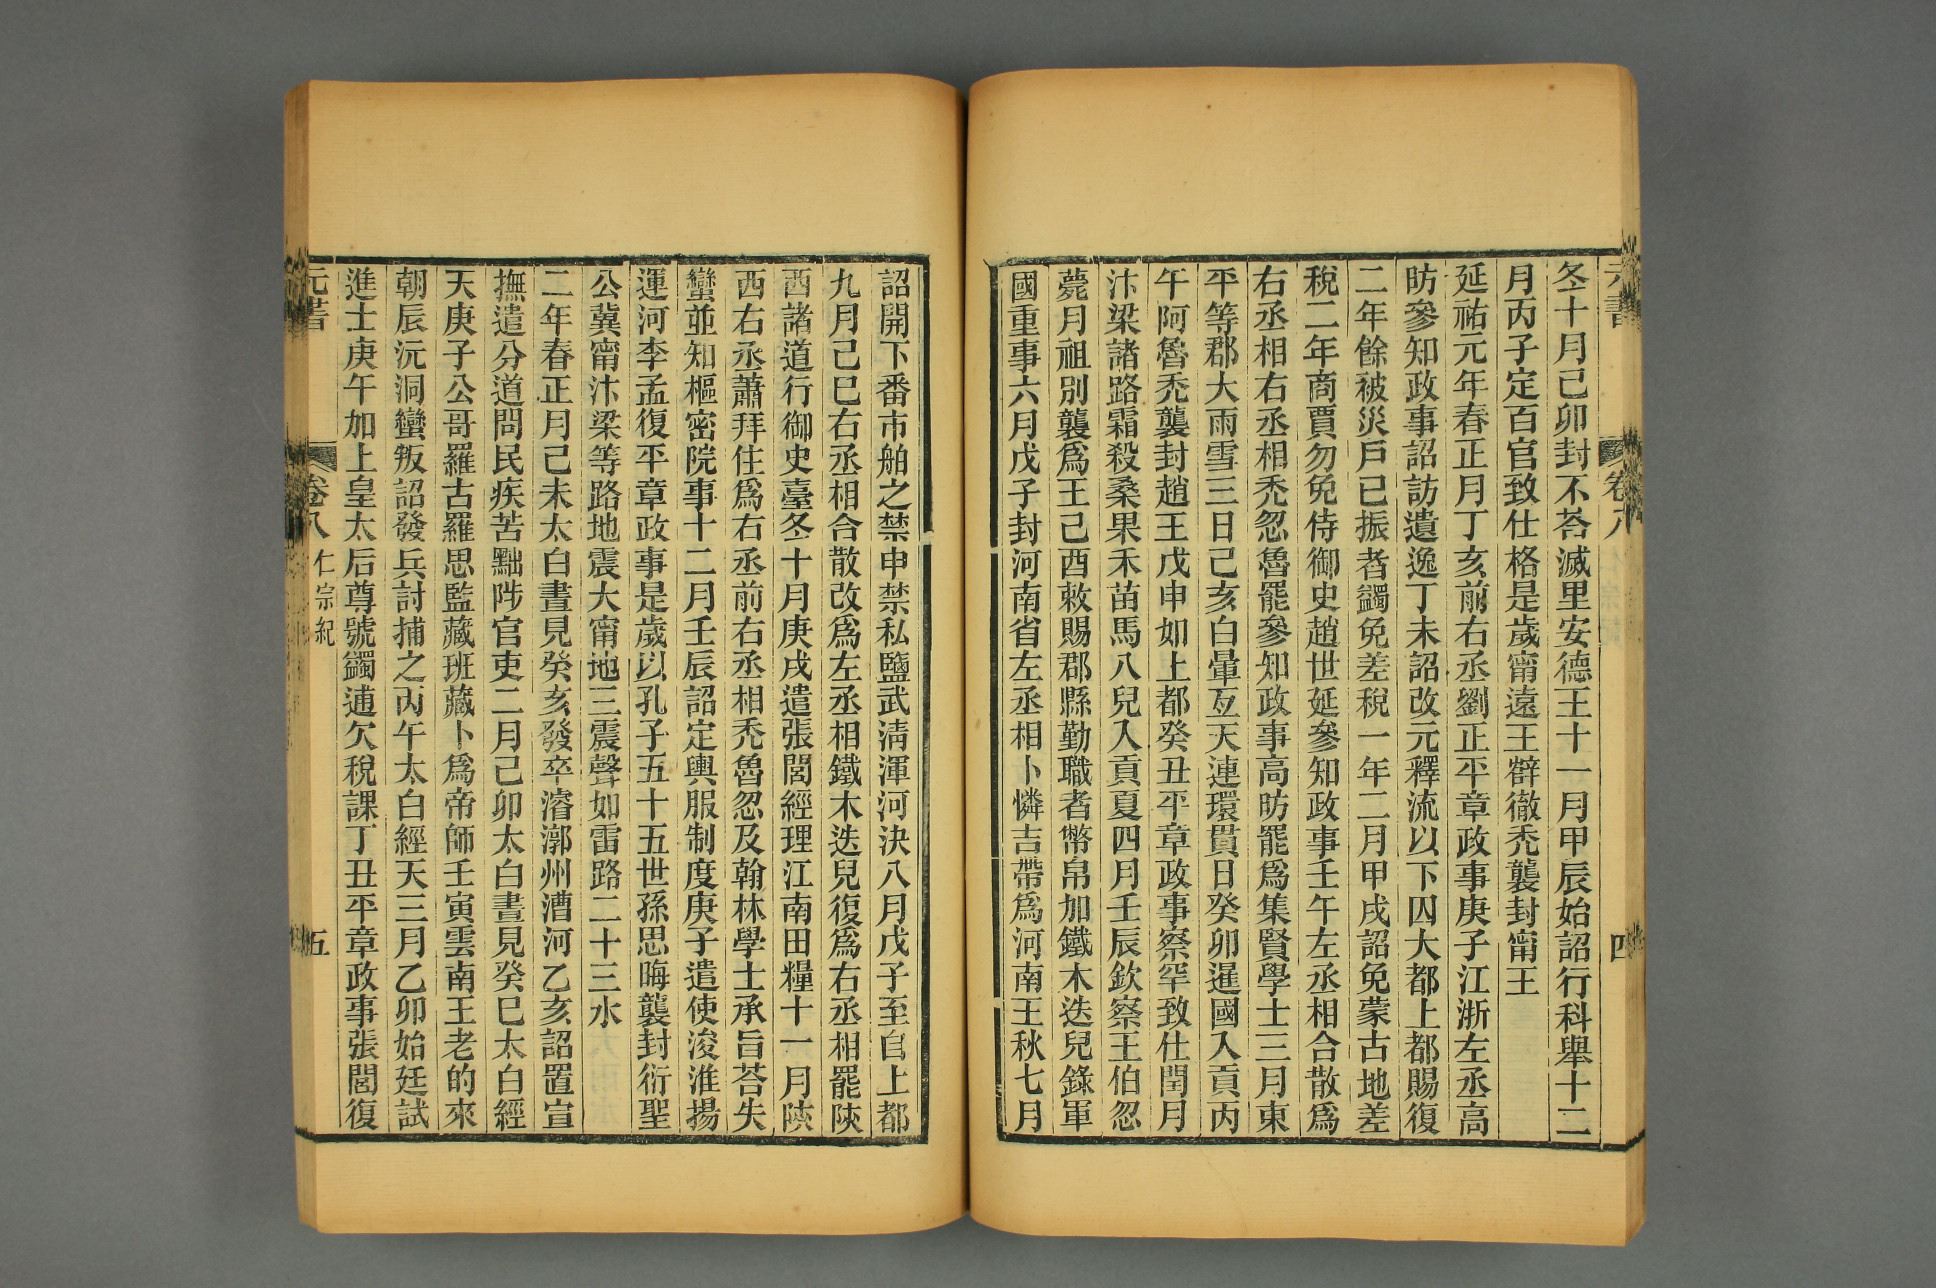 元書
卷八
四
冬十月己卯封不荅滅里安德王十一月甲辰始詔行科舉十二
月丙子定百官致仕格是歲甯遠王㸁徹禿襲封甯王
延祐元年春正月丁亥前右丞劉正平章政事庚子江浙左丞高
昉參知政事詔訪遺逸丁未詔改元釋流以下囚大都上都賜復
二年餘被災戶已振者蠲免差稅一年二月甲戌詔免蒙古地差
稅二年商賈勿免侍御史趙世延參知政事壬午左丞相合散爲
右丞相右丞相禿忽魯罷參知政事高昉罷爲集賢學士三月東
平等郡大雨雪三日己亥白暈亙天連環貫日癸卯暹國入貢丙
午阿魯禿襲封趙王戊申如上都癸丑平章政事察罕致仕閏月
汴梁諸路霜殺桑果禾苗馬八兒入貢夏四月壬辰欽察王伯忽
薨月祖別襲爲王己酉敕賜郡縣勤職者幣帛加鐵木迭兒錄軍
國重事六月戊子封河南省左丞相卜憐吉帶爲河南王秋七月
詔開下番市舶之禁申禁私鹽武淸渾河決八月戊子至自上都
九月己巳右丞相合散改爲左丞相鐵木迭兒復爲右丞相罷陝
西諸道行御史臺冬十月庚戌遣張閭經理江南田糧十一月陝
西右丞蕭拜住爲右丞前右丞相禿魯忽及翰林學士承旨荅失
蠻並知樞密院事十二月壬辰詔定輿服制度庚子遣使浚淮揚
運河李孟復平章政事是歲以孔子五十五世孫思晦襲封衍聖
公冀甯汴梁等路地震大甯地三震聲如雷路二十三水
二年春正月己未太白晝見癸亥發卒濬漷州漕河乙亥詔置宣
撫遣分道問民疾苦黜陟官吏二月己卯太白晝見癸巳太白經
天庚子公哥羅古羅思監藏班藏卜爲帝師壬寅雲南王老的來
朝辰沅洞蠻叛詔發兵討捕之丙午太白經天三月乙卯始廷試
進士庚午加上皇太后尊號蠲逋欠稅課丁丑平章政事張閭復
元書
卷八
仁宗紀
五